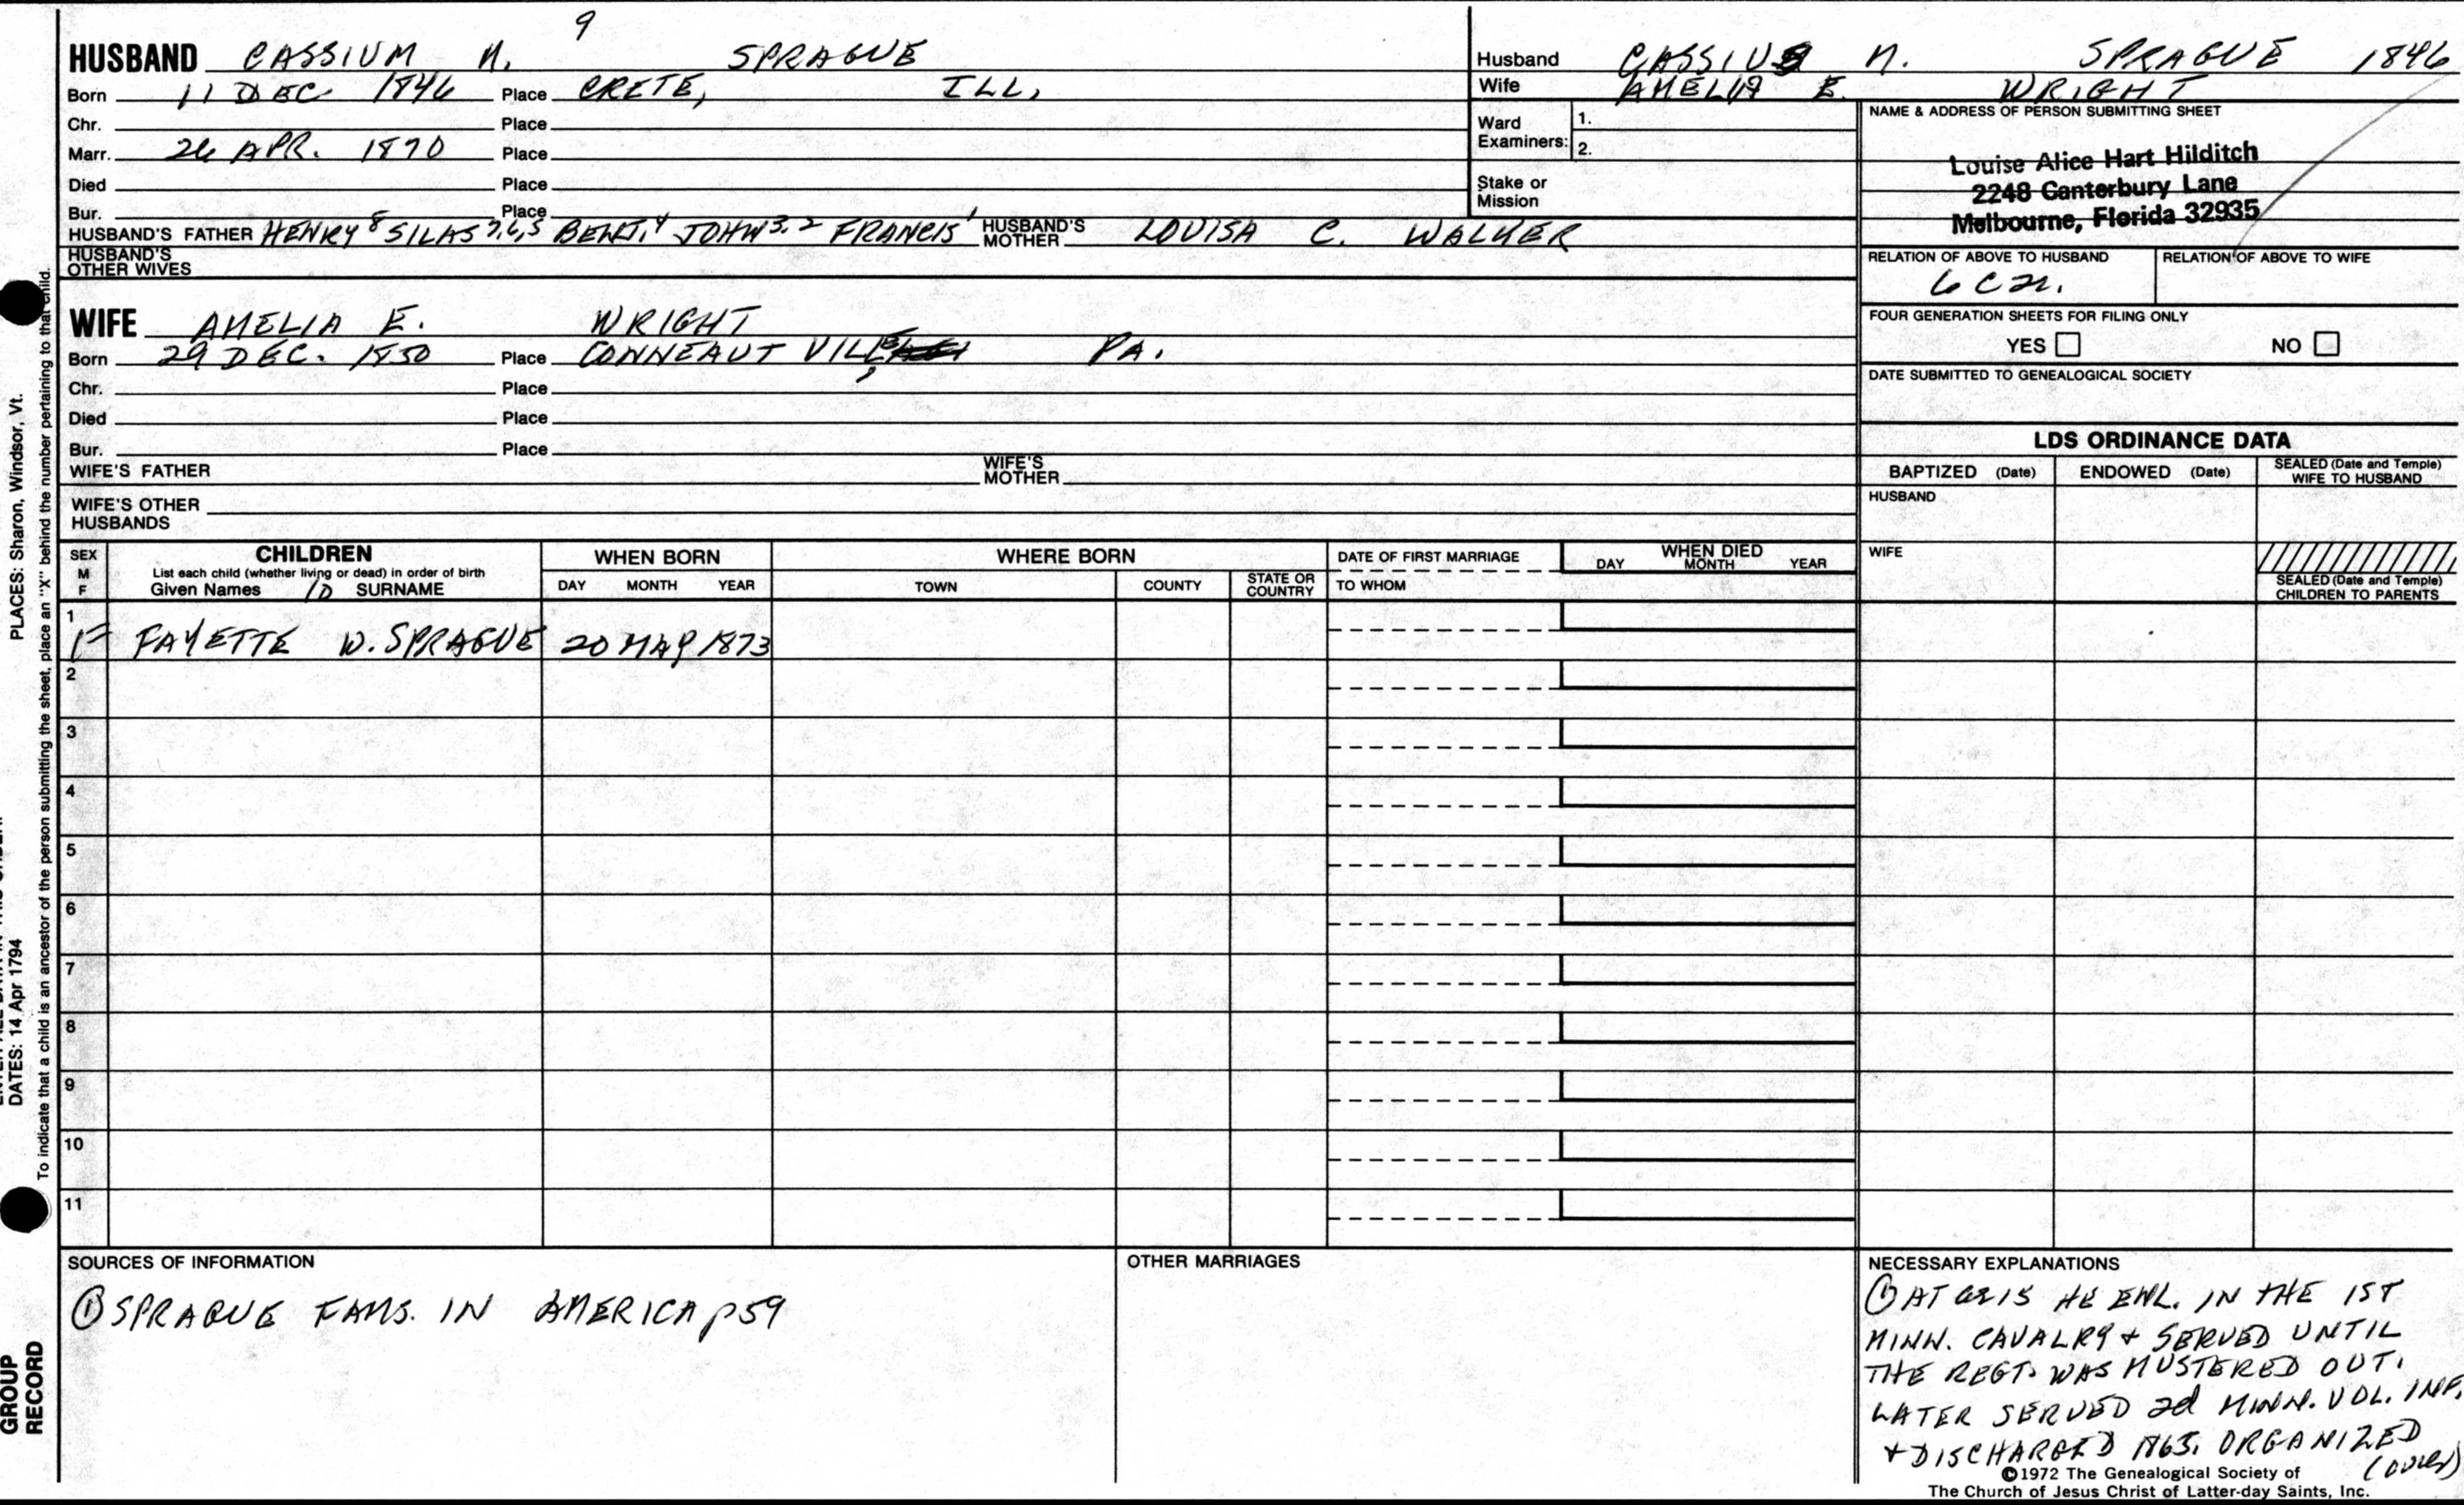 9
HUSBAND CASSIUM N. SPRAGUE
Born 11 DEC 1846 Place CRETE, ILL.
Chr. Place
Marr. 26 APR. 1870 Place
Died Place
Bur. Place
HUSBAND'S FATHER HENRY 8 SILAS 7,6,5 BENJ. 4 JOHN 3,2 FRANCIS 1 HUSBAND'S MOTHER LOUISA C. WALKER
HUSBAND'S OTHER WIVES
WIFE AMELIA E. WRIGHT
Born 29 DEC. 1850 Place CONNEAUT VILLE, PA.
Chr. Place
Died Place
Bur. Place
WIFE'S FATHER WIFE'S MOTHER
WIFE'S OTHER HUSBANDS
Husband CASSIUS N. SPRAGUE 1846
Wife AMELIA E. WRIGHT
Ward Examiners: 1. 2.
Stake or Mission
NAME & ADDRESS OF PERSON SUBMITTING SHEET
Louise Alice Hart Hilditch
2248 Canterbury Lane
Melbourne, Florida 32935
RELATION OF ABOVE TO HUSBAND RELATION OF ABOVE TO WIFE
FOUR GENERATION SHEETS FOR FILING ONLY
YES NO
DATE SUBMITTED TO GENEALOGICAL SOCIETY
LDS ORDINANCE DATA
BAPTIZED (Date) ENDOWED (Date) SEALED (Date and Temple) WIFE TO HUSBAND
HUSBAND
WIFE
SEALED (Date and Temple)
CHILDREN TO PARENTS
SEX M F
CHILDREN
List each child (whether living or dead) in order of birth
Given Names 10 SURNAME
WHEN BORN
DAY MONTH YEAR
WHERE BORN
TOWN COUNTY STATE OR COUNTRY
DATE OF FIRST MARRIAGE
TO WHOM
WHEN DIED
DAY MONTH YEAR
1
F FAYETTE W. SPRAGUE 20 MAY 1873
2
3
4
5
6
7
8
9
10
11
SOURCES OF INFORMATION
① SPRAGUE FAMS. IN AMERICA p59
OTHER MARRIAGES
NECESSARY EXPLANATIONS
① AT 15 HE ENL. IN THE 1ST
MINN. CAVALRY + SERVED UNTIL
THE REGT. WAS MUSTERED OUT.
LATER SERVED 2d MINN. VOL. INF.
+ DISCHARGED 1865. ORGANIZED
(OVER)
©1972 The Genealogical Society of
The Church of Jesus Christ of Latter-day Saints, Inc.
PLACES: Sharon, Windsor, Vt.
DATES: 14 Apr 1794
To indicate that a child is an ancestor of the person submitting the sheet, place an "X" behind the number pertaining to that child.
GROUP
RECORD